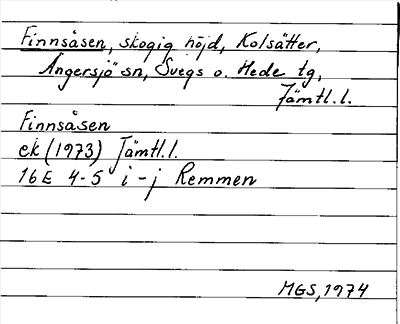 Finnsåsen, skogig höjd, Kolsätter,
Ängersjö sn, Svegs o. Hede tg,
Jämtl.l.
Finnsåsen
ek (1973) Jämtl.l.
16E 4-5 i-j Remmen
MGS, 1974